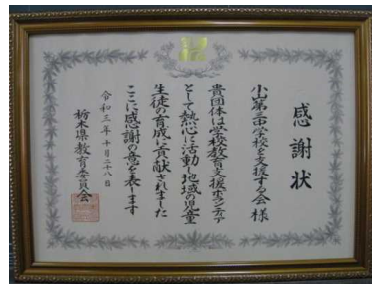 感謝状
小山第三中学校を支援する会 様
貴団体は学校教育支援ボランティア
として熱心に活動し地域の児童
生徒の育成に貢献されました
ここに感謝の意を表します
令和三年十月二十八日
栃木県教育委員会